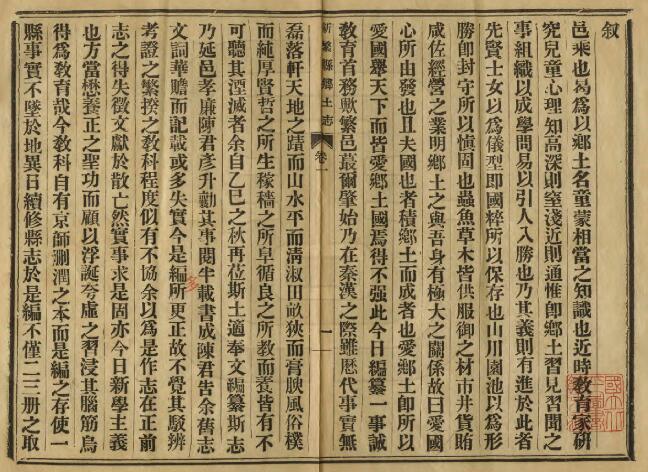 叙
邑乘也曷爲以鄉土名童蒙相當之知識也近時教育家硏
究兒童心理知高深則窒淺近則通惟卽鄉土習見習聞之
事組織以成學問易以引人入勝也乃其義則有進於此者
先賢士女以爲儀型卽國粹所以保存也山川園池以爲形
勝卽封守所以愼固也蟲魚草木皆供服御之材市井貨賄
咸佐經營之業明鄉土之與吾身有極大之關係故曰愛國
心所由發也且夫國也者積鄉土而成者也愛鄉土卽所以
愛國舉天下而皆愛鄉土國焉得不强此今日編纂一事誠
敎育首務歟繁邑蕞爾肇始乃在秦漢之際雖歷代事實無
新繁縣鄉土志
卷一
一
磊落軒天地之蹟而山水平而淸淑田畝狹而膏腴風俗樸
而純厚賢哲之所生稼穡之所阜循良之所敎而養皆有不
可聽其湮滅者余自乙巳之秋再莅斯土適奉文編纂斯志
乃延邑孝廉陳君彥升勷其事閱半載書成陳君告余舊志
文詞華贍而記載或多失實今是編所更正故不覺其駁辨
多
考證之繁揆之敎科程度似有不協余以爲是作志在正前
志之得失徵文獻於散亡然實事求是固亦今日新學主義
也方當懋養正之聖功而顧以浮誕夸虛之習浸其腦筋烏
得爲敎育哉今敎科自有京師删潤之本而是編之存使一
縣事實不墜於地異日續修縣志於是編不僅二三册之取